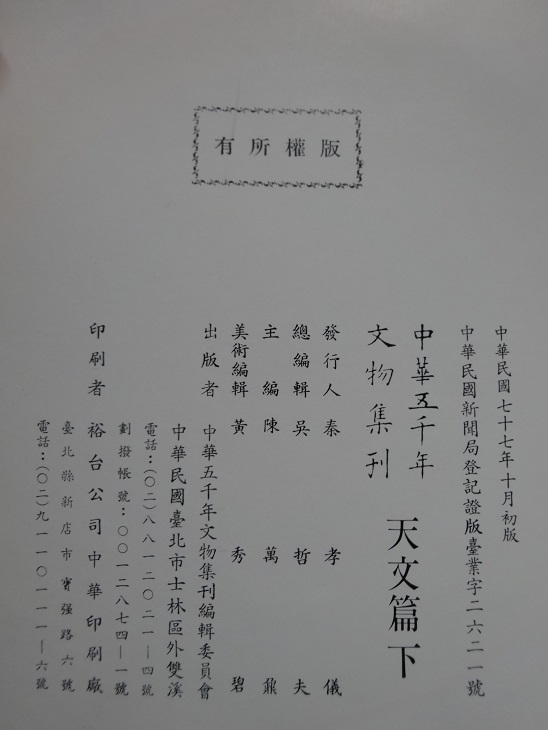 版權所有
中華民國七十七年十月初版
中華民國新聞局登記證版臺業字二六二一號
中華五千年
文物集刊
天文篇下
發行人秦孝儀
總編輯吳哲夫
主編陳萬鼐
美術編輯黃秀碧
出版者中華五千年文物集刊編輯委員會
中華民國臺北市士林區外雙溪
電話：（〇二）八八一二〇二一—四號
劃撥帳號：〇〇一二八七四—一號
印刷者裕台公司中華印刷廠
臺北縣新店市寶强路六號
電話：（〇二）九一一〇一一一—六號